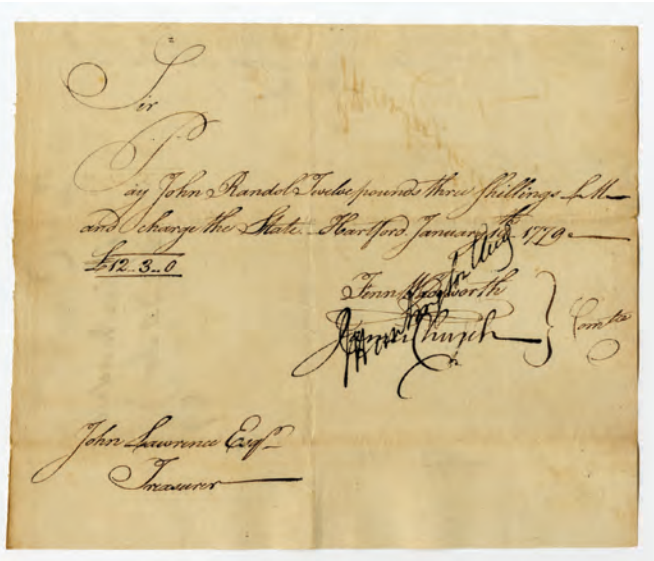 Sir
Pay John Randol Twelve pounds three shillings L.M
and charge the State Hartford January 1st 1779
£12..3..0
Fenn Wadsworth
James Church
Comtee
John Lawrence Esqr
Treasurer